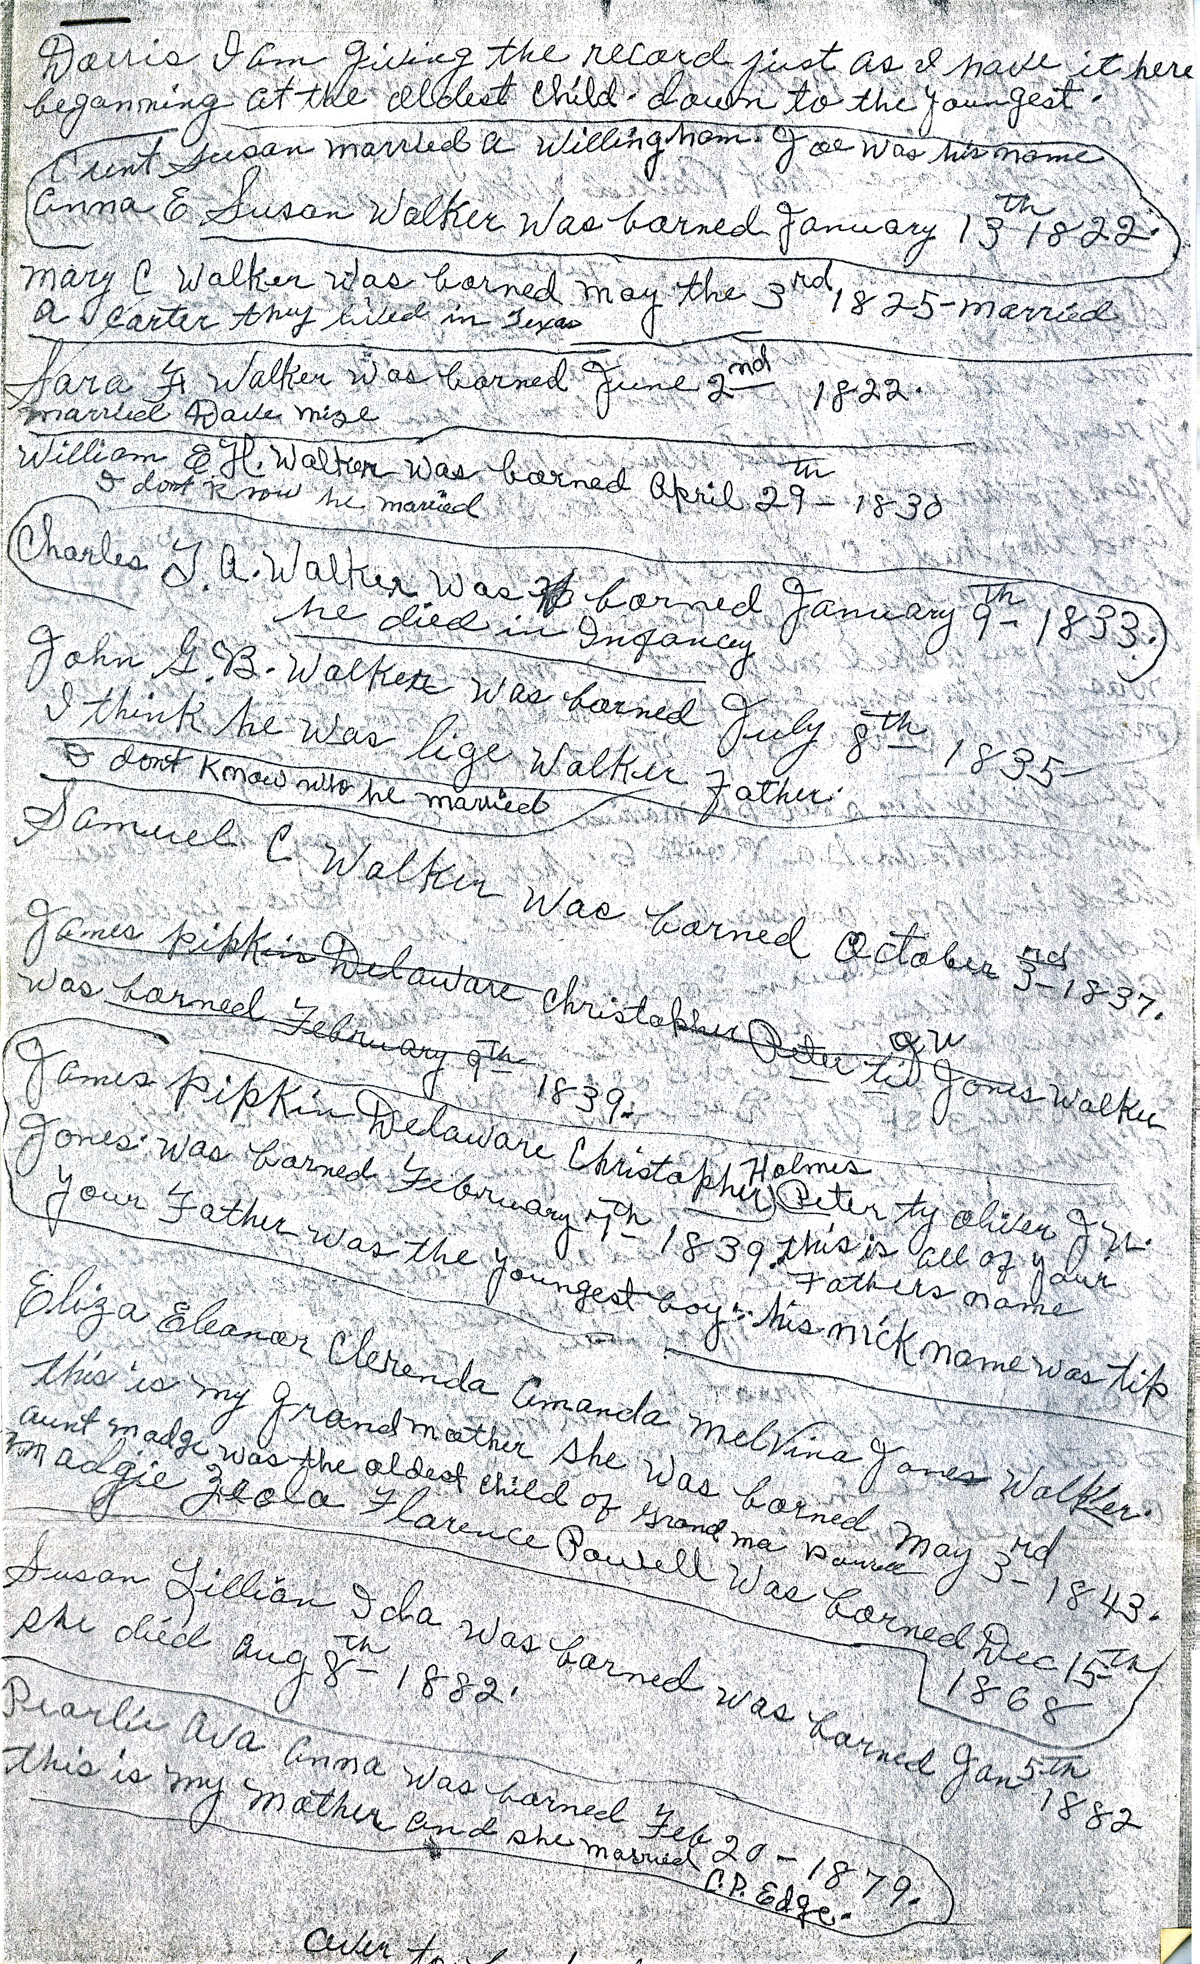 Dorris I am giving the record just as I have it here
beganning at the oldest child. down to the youngest.
Aunt Susan married a Willingham. Joe was his name
Anna E Susan Walker was borned January 13th 1822.
Mary C Walker was borned may the 3rd, 1825 - married
a Carter they lived in Texas
Sara F Walker was borned June 2nd 1822.
married Dave mize
William E H. Walker was borned April 29th - 1830
I dont Know he married
Charles T. A. Walker was borned January 9th - 1833.
he died in Infancy
John G. B. Walker was borned July 8th 1835
I think he was lige Walker Father.
I dont Know who he married
Samuel C Walker was borned October 3rd - 1837.
James pipkin Delaware Christopher Peter tie J W Jones Walker
was borned February 9th 1839.
James Pipkin Delaware Christopher Holmes Peter ty oliver J W.
Jones was borned February 7th 1839. this is all of your
Fathers name
your Father was the youngest boy. his nick name was tip
Eliza Eleanor Clerenda Amanda Melvina Jones Walker.
this is my grandmother she was borned May 3rd - 1843.
aunt madge was the oldest child of Grand ma Powell
Madgie Florence Powell was borned Dec 15th
1868
Susan Lillian Ida was borned was borned Jan 5th
1882
she died Aug 8th - 1882.
Pearlie Ava Anna was borned Feb 20 - 1879.
this is my mother and she married C.P. Edge.
over